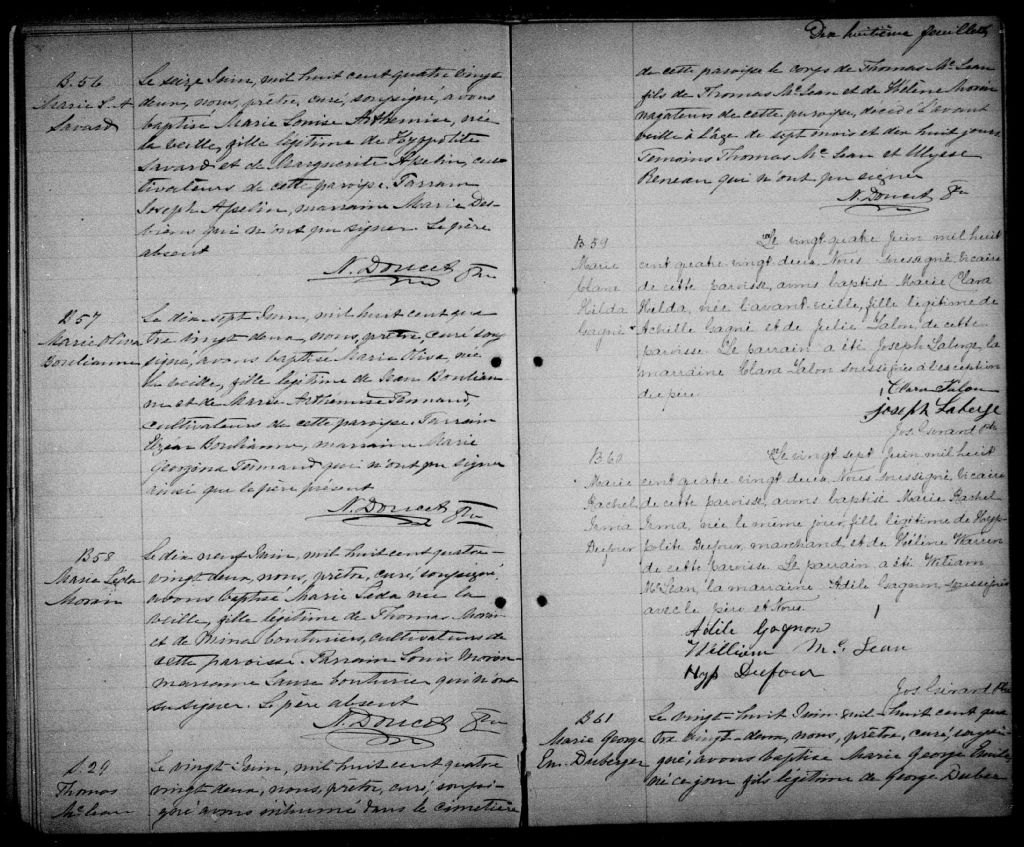 B. 56
Marie L. A
Savard
Le seize Juin, mil huit cent quatre vingt
deux, nous, prêtre, curé, soussigné, avons
baptisé Marie Louise Arthemise, née
la veille, fille légitime de Hyppolite
Savard et de Marguerite Asselin, cul-
tivateurs de cette paroisse. Parrain
Joseph Asselin, marraine Marie Des-
biens qui n'ont pu signer. Le père
absent
N. Doucet Ptre
B. 57
Marie Oliva
Boulianne
Le dix sept Juin, mil huit cent qua
tre vingt deux, nous, prêtre, curé sous
signé, avons baptisé Marie Oliva née
la veille, fille légitime de Jean Boulian-
ne et de Marie Arthemise Tremand,
cultivateurs de cette paroisse. Parrain
Elzéar Boulianne, marraine Marie
Georgina qui n'ont pu signer
ainsi que le père présent
N. Doucet Ptre
B 58
Marie Leda
Morin
Le dix neuf Juin, mil huit cent quatre-
vingt deux, nous, prêtre, curé, soussigné,
avons baptisé Marie Leda née la
veille, fille légitime de Thomas Morin
et de Mina Couturier, cultivateurs de
cette paroisse. Parrain Louis Morin
marraine Laure Couturier qui n'ont
su signer. Le père absent
N. Doucet Ptre
S. 29
Thomas
Mc Lean
Le vingt Juin, mil huit cent quatre
vingt deux, nous, prêtre, curé, soussi-
gné avons inhumé dans le cimetière
Dix huitième feuillet
de cette paroisse le corps de Thomas Mc Lean
fils de Thomas Mc Lean et de Hélène Morin
navigateurs de cette paroisse, décédé l'avant
veille à l'âge de sept mois et dix huit jours
Témoins Thomas Mc Lean et Ulysse
Beneau qui n'ont pu signer
N. Doucet Ptre
B 59
Marie
Clara
Hilda
Gagné
Le vingt quatre Juin mil huit
cent quatre vingt deux. Nous soussigné Vicaire
de cette paroisse, avons baptisé Marie Clara
Hilda, née l'avant veille, fille légitime de
Achille Gagné et de Julie Talon, de cette
paroisse. Le parrain a été Joseph Laberge, la
marraine Clara Talon soussignés à l'exception
du père.
Clara Talon
Joseph Laberge
Jos. Girard Ptre
B 60
Marie
Rachel
Irma
Dufour
Le vingt sept Juin mil huit
cent quatre vingt deux, Nous soussigné, Vicaire
de cette paroisse, avons baptisé Marie Rachel
Irma, née le même jour, fille légitime de Hyp-
polite Dufour, marchand, et de Hélène Warren
de cette paroisse. Le parrain a été William
McLean, la marraine Adile Gagnon, soussignés
avec le père et Nous.
Adile Gagnon
William Mc Lean
Hyp Dufour
Jos. Girard Ptre
B 61
Marie George
Em. Duberger
Le vingt-huit Juin mil-huit cent qua
tre vingt-deux, nous, prêtre, curé, soussi
gné, avons baptisé Marie George Emile,
né ce jour fils légitime de George Duber